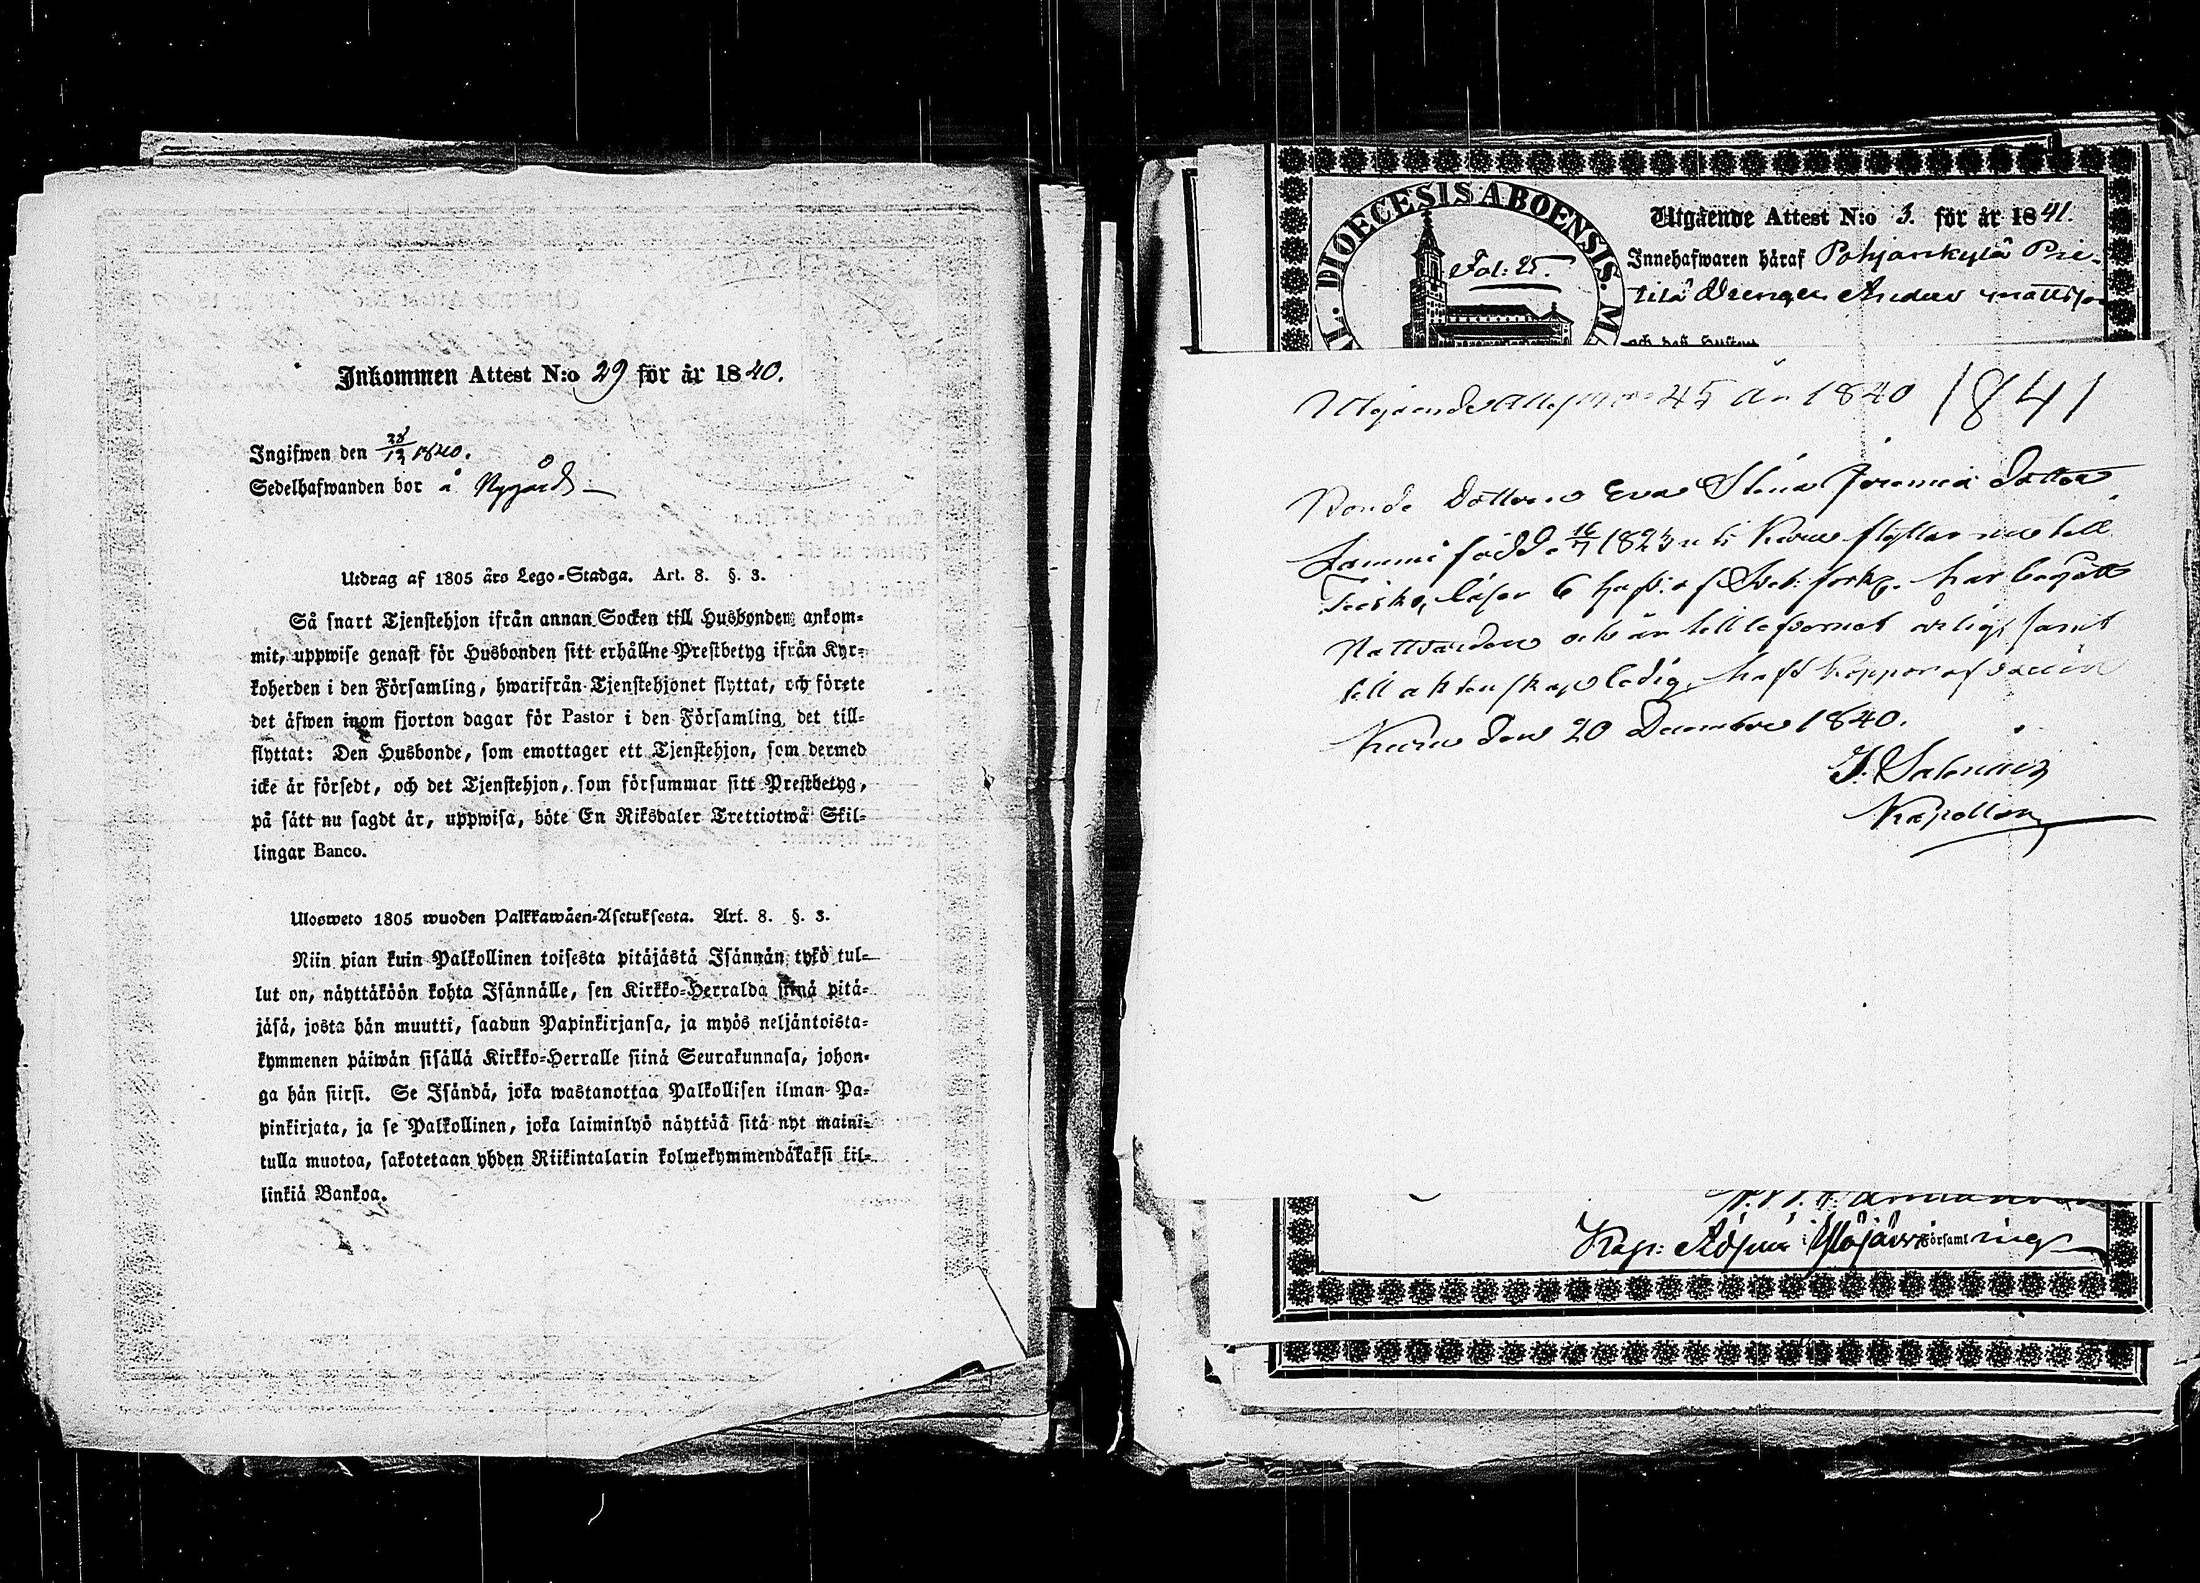 Inkommen Attest N:o 29 för år 1840.
Ingifwen den 28/12 1840.
Sedelhafwanden bor å Nygård
Utdrag af 1805 års Lego-Stadga. Art. 8. §. 3.
Så snart Tjenstehjon ifrån annan Socken till Husbonden ankom-
mit, uppwise genast för Husbonden sitt erhållne Prestbetyg ifrån Kyr-
koherden i den Församling, hwarifrån Tjenstehjonet flyttat, och förete
det äfwen inom fjorton dagar för Pastor i den Församling det till-
flyttat: Den Husbonde, som emottager ett Tjenstehjon, som dermed
icke är försedt, och det Tjenstehjon, som försummar sitt Prestbetyg,
på sätt nu sagdt är, uppwisa, böte En Riksdaler Trettiotwå Skil-
lingar Banco.
Ulosweto 1805 wuoden Palkkawäen-Asetuksesta. Art. 8. §. 3.
Niin pian kuin Palkollinen toisesta pitäjästä Isännän tykö tul-
lut on, näyttäköön kohta Isännälle, sen Kirkko-Herralda siinä pitä-
jäsä, josta hän muutti, saadun Papinkirjansa, ja myös neljäntoista-
kymmenen päiwän sisällä Kirkko-Herralle siinä Seurakunnasa, johon-
ga hän siirsi. Se Isändä, joka wastanottaa Palkollisen ilman Pa-
pinkirjata, ja se Palkollinen, joka laiminlyö näyttää sitä nyt maini-
tulla muotoa, sakotetaan yhden Riikintalarin kolmekymmendäkaksi kil-
linkiä Bankoa.
DIOECESIS ABOENSIS.
Fol: 25.
Utgående Attest N:o 3. för år 1841.
Innehafwaren häraf Pohjankylä Pie-
tilä Drengen Anders Mattsson
och des Hustru
Utgående Attest N:o 45 år 1840 1841
Bonde Dottren Eva Stina Jeremiä dotter
Lammi född 16/7 1823 i Kuru flyttar nu till
Teisko, läser 6 hufst. af Sveb: förkl. har begått
Nattvarden och är till lefvernet ärlig samt
till äktenskap ledig, haft koppor af vaccin
Kuru den 20 December 1840.
J. Salenius
Kapellan
Kap: Adjun: i Ylöjärvi Församling